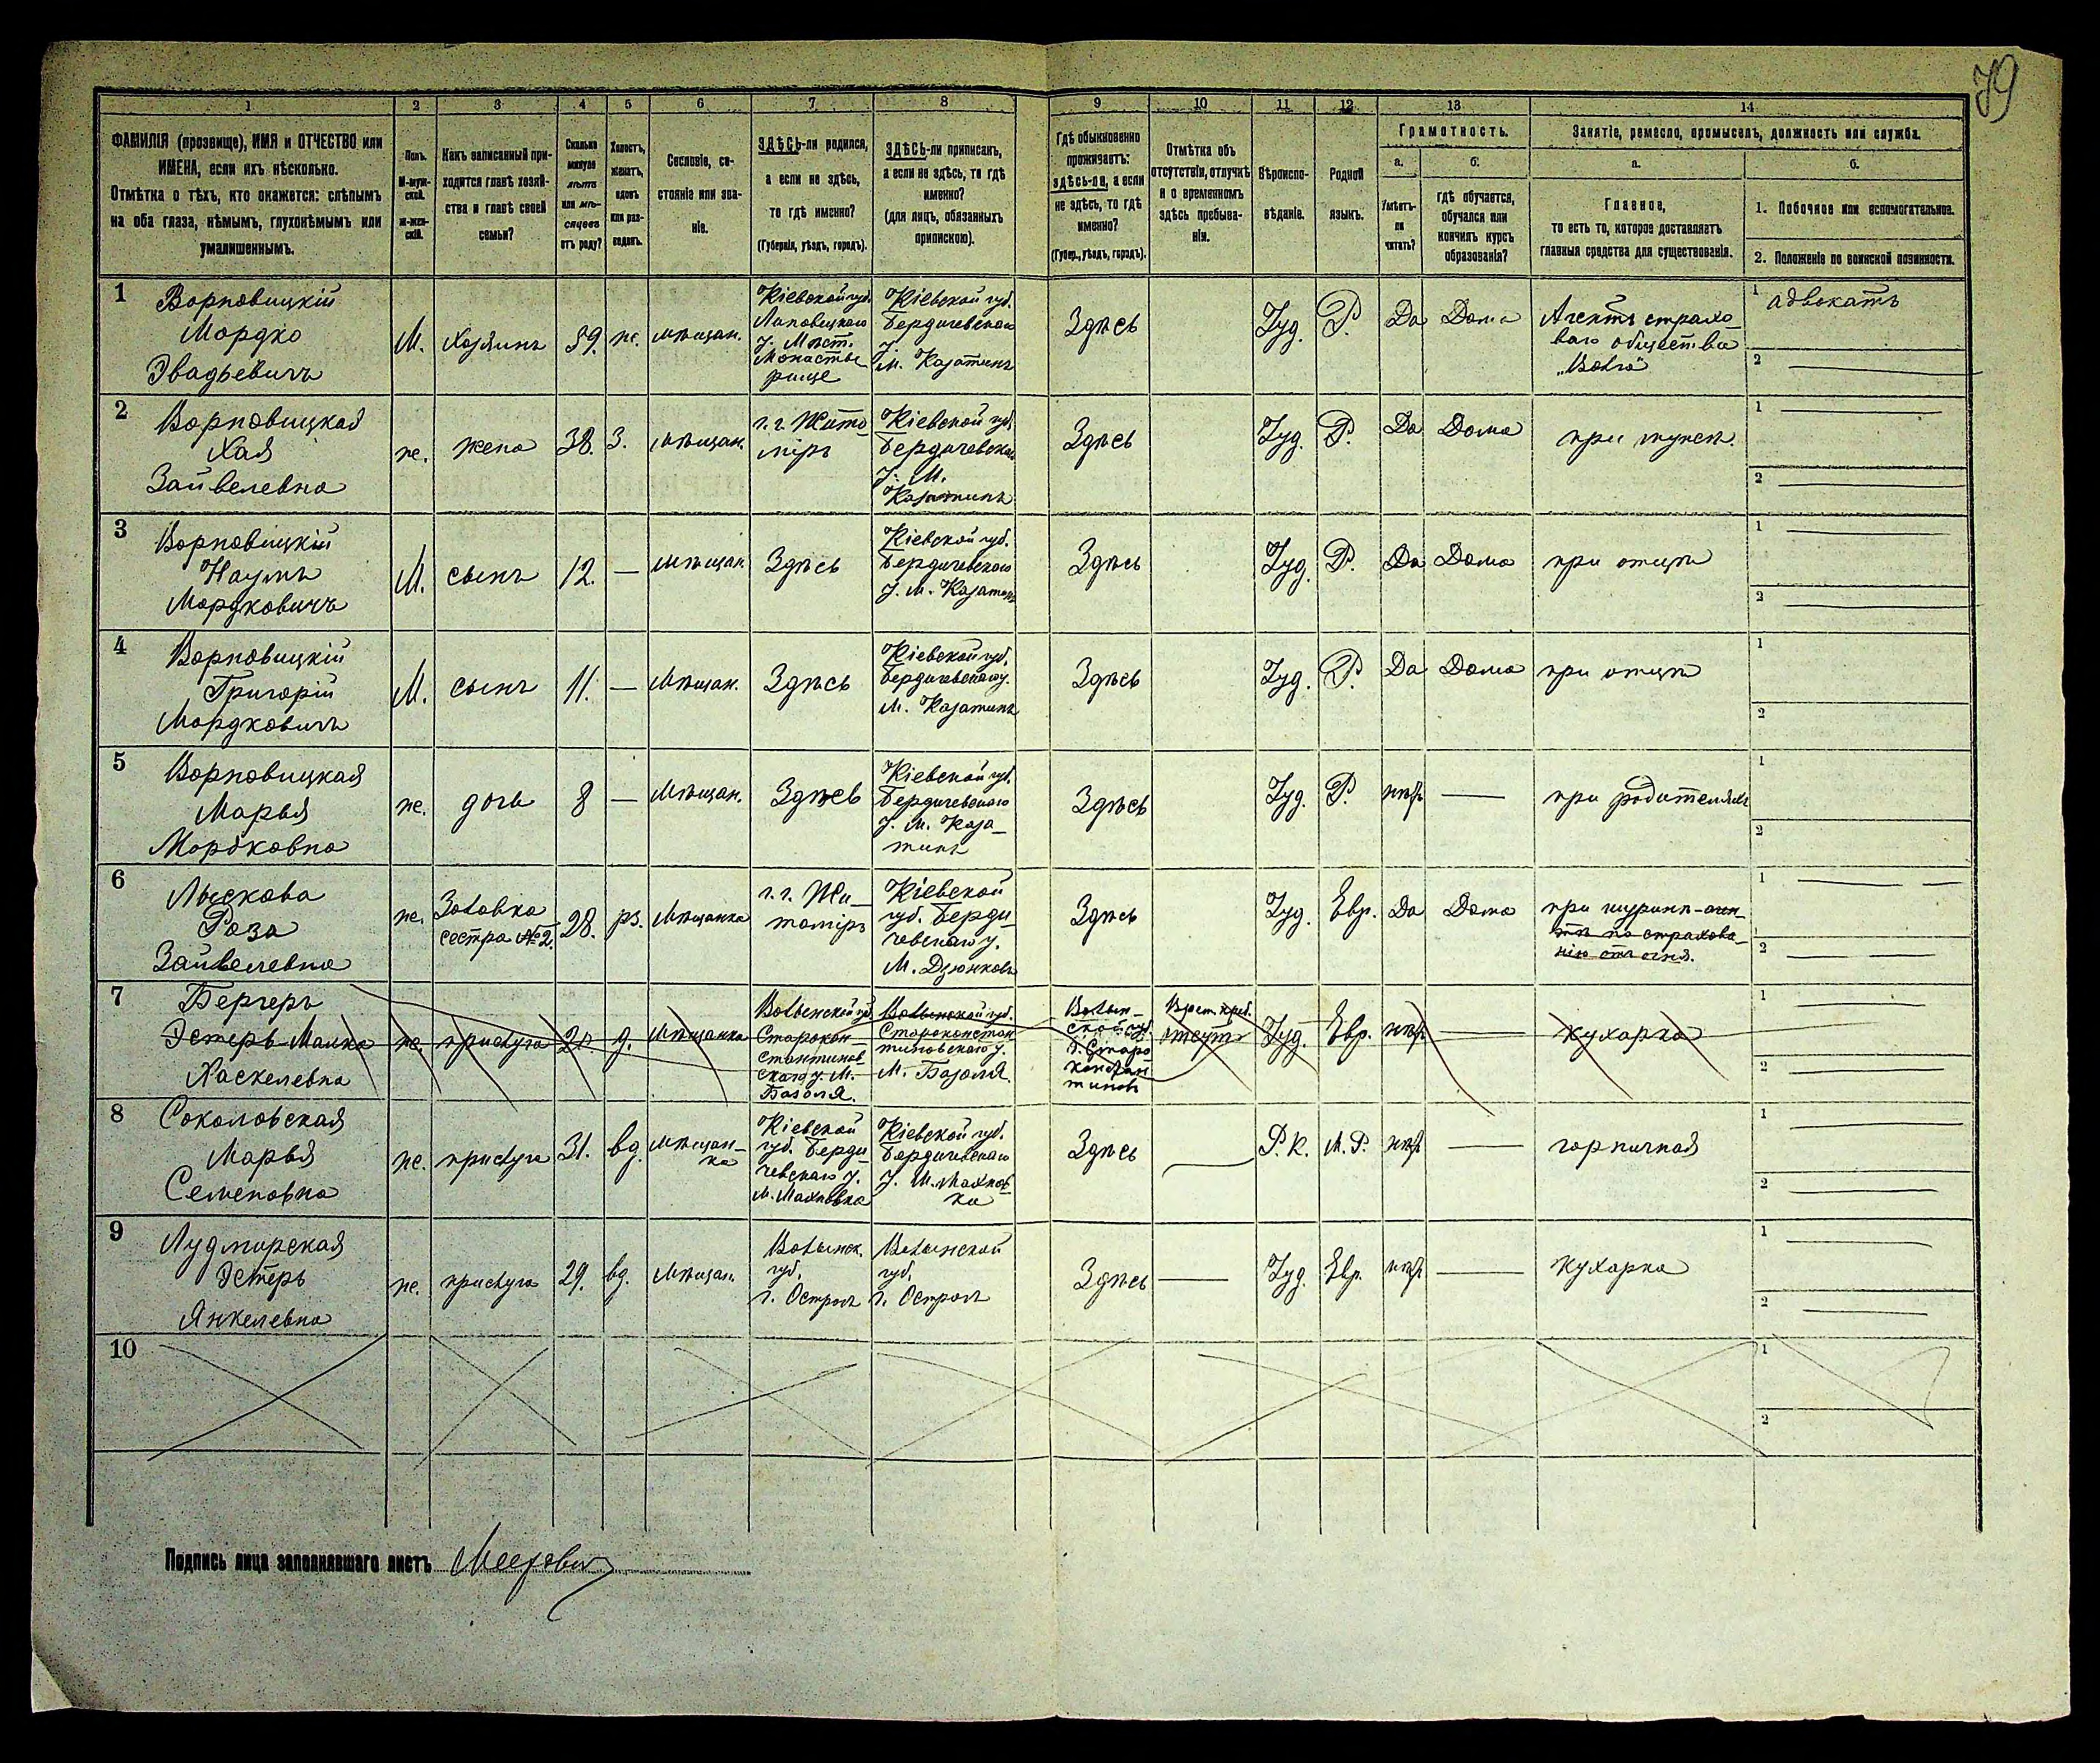 79
1
2
3
4
5
6
7
8
9
10
11
12
13
14
ФАМИЛІЯ (прозвище), ИМЯ и ОТЧЕСТВО или
ИМЕНА, если ихъ нѣсколько.
Отмѣтка о тѣхъ, кто окажется: слѣпымъ
на оба глаза, нѣмымъ, глухонѣмымъ или
умалишеннымъ.
Полъ.
М-муж-
ской.
Ж-жен-
скій.
Какъ записанный при-
ходится главѣ хозяй-
ства и главѣ своей
семьи?
Сколько
минуло
лѣтъ
или мѣ-
сяцевъ
отъ роду?
Холостъ,
женатъ,
вдовъ
или раз-
веденъ.
Сословіе, со-
стояніе или зва-
ніе.
ЗДѢСЬ-ли родился,
а если не здѣсь,
то гдѣ именно?
(Губернія, уѣздъ, городъ).
ЗДѢСЬ-ли приписанъ,
а если не здѣсь, то гдѣ
именно?
(для лицъ, обязанныхъ
припискою).
Гдѣ обыкновенно
проживаетъ:
здѣсь-ли, а если
не здѣсь, то гдѣ
именно?
(Губер., уѣздъ, городъ).
Отмѣтка объ
отсутствіи, отлучкѣ
и о временномъ
здѣсь пребыва-
ніи.
Вѣроиспо-
вѣданіе.
Родной
языкъ.
Грамотность.
а.
Умѣетъ-
ли
читать?
б.
гдѣ обучается,
обучался или
кончилъ курсъ
образованія?
Занятіе, ремесло, промыселъ, должность или служба.
а.
Главное,
то есть то, которое доставляетъ
главныя средства для существованія.
б.
1. Побочное или вспомогательное.
2. Положеніе по воинской повинности.
1
Ворновицкій
Мордко
Эвадьевичъ
М.
хозяинъ
39.
ж.
мѣщан.
Кіевской губ.
Липовецкаго
у. Мѣст.
Монасты-
рище
Кіевской губ.
Бердичевскаго
у.
М. Казатинъ
Здѣсь
Іуд.
Р.
Да
Дома
Агентъ страхо-
ваго общества
„Волга"
1
адвокатъ
2
2
Ворновицкая
Хая
Зайвелевна
ж.
жена
38.
З.
мѣщан.
г. г. Жито-
міръ
Кіевской губ.
Бердичевскаго
у. М.
Казатинъ
Здѣсь
Іуд.
Р.
Да
Дома
при мужѣ.
1
2
3
Ворновицкій
Наумъ
Мордковичъ
М.
сынъ
12.
—
мѣщан.
Здѣсь
Кіевской губ.
Бердичевскаго
у. М. Казатинъ
Здѣсь
Іуд.
Р.
Да
Дома
при отцѣ
1
2
4
Ворновицкій
Григорій
Мордковичъ
М.
сынъ
11.
—
мѣщан.
Здѣсь
Кіевской губ.
Бердичевскаго у.
М. Казатинъ
Здѣсь
Іуд.
Р.
Да
Дома
при отцѣ
1
2
5
Ворновицкая
Марья
Мордковна
ж.
дочь
8
—
мѣщан.
Здѣсь
Кіевской губ.
Бердичевскаго
у. М. Каза-
тинъ
Здѣсь
Іуд.
Р.
нѣтъ
—
при родителяхъ
1
2
6
Лыскова
Роза
Зайвелевна
ж.
Золовка
сестра №2.
28.
рз.
мѣщанка
г. г. Жи-
томіръ
Кіевской
губ. Берди-
чевскаго у.
М. Дзюнковъ
Здѣсь
Іуд.
Евр.
Да
Дома
при шуринѣ-аген-
тѣ по страхова-
нію отъ огня.
1
2
7
Бергеръ
Эстеръ-Малка
Хаскелевна
ж.
прислуга
20
д.
мѣщанка
Волынской губ.
Старокон-
стантинов-
скаго у. М.
Базалія.
Волынской губ.
Староконстан-
тиновскаго у.
М. Базалія.
Волын-
ской губ.
г. Старо-
констан-
тиновъ
Врем. преб.
Іуд.
Евр.
нѣтъ
—
кухарка
1
2
8
Соколовская
Марья
Семеновна
ж.
прислуга
31.
вд.
мѣщан-
ка
Кіевской
губ. Берди-
чевскаго у.
М. Махновка
Кіевской губ.
Бердичевскаго
у. М. Махнов-
ка
Здѣсь
Р. К.
М. Р.
нѣтъ
—
горничная
1
2
9
Лудмирская
Эстеръ
Янкелевна
ж.
прислуга
29.
вд.
мѣщан.
Волынск.
губ.
г. Острогъ
Волынской
губ.
г. Острогъ
Здѣсь
—
Іуд.
Евр.
нѣтъ
—
кухарка
1
2
10
1
2
Подпись лица заполнявшаго листъ